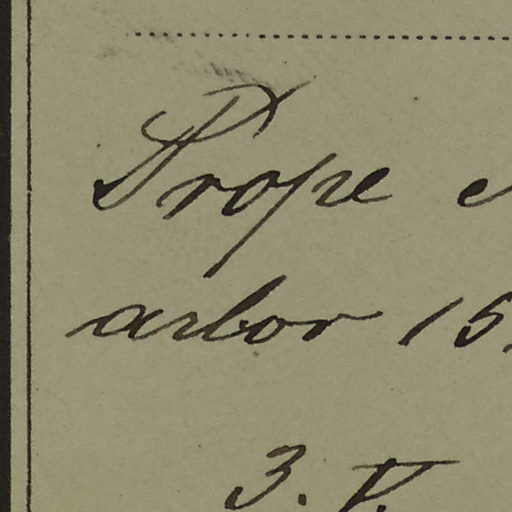 Prope
arbor 15
3. V.